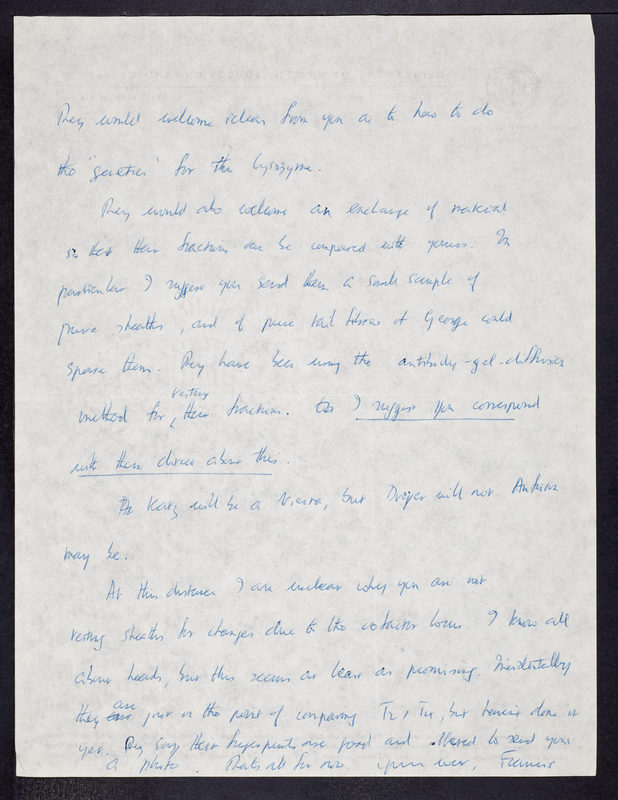 They would welcome ideas from you as to how to do
the "genetics" for the lysozyme.
They would also welcome an exchange of material
so that their fractions can be compared with yours. In
particular I suggest you send them a small sample of
pure sheaths, and of pure tail fibres if George could
spare them. They have been using the antibody-gel-diffusion
method for testing their fractions. I suggest you correspond
with them direct about this.
Dr Katz will be at Vienna, but Dreyer will not. Anfinsen
may be.
At this distance I am unclear why you are not
testing sheaths for changes due to the cofactor locus. I know all
about heads, but this seems at least as promising. Incidentally
they are just on the point of comparing T2 & T4, but haven't done it
yet. They say their fingerprints are good and offered to send you
a photo. That's all for now. yours ever, Francis